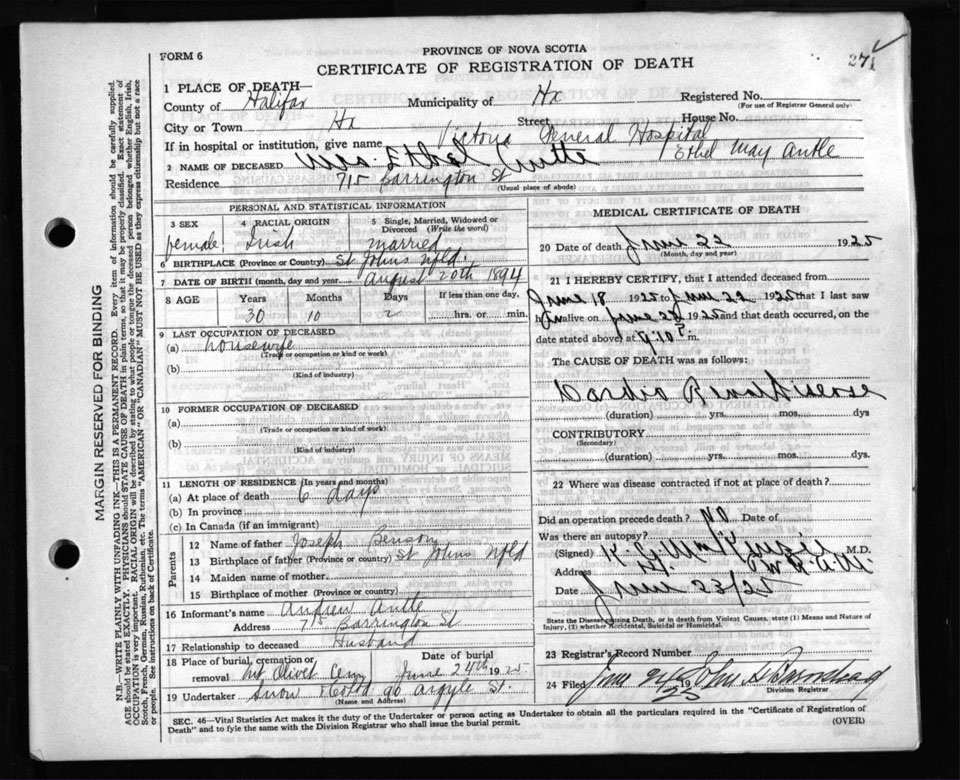 PROVINCE OF NOVA SCOTIA
FORM 6
CERTIFICATE OF REGISTRATION OF DEATH
271
1 PLACE OF DEATH—
County of Halifax Municipality of Hx Registered No.
(For use of Registrar General only)
City or Town Hx Street House No.
If in hospital or institution, give name Victoria General Hospital
2 NAME OF DECEASED Mrs. Ethel Antle Ethel May Antle
Residence 715 Barrington St
(Usual place of abode)
PERSONAL AND STATISTICAL INFORMATION
3 SEX 4 RACIAL ORIGIN 5 Single, Married, Widowed or Divorced (Write the word)
female Irish married
6 BIRTHPLACE (Province or Country) St Johns Nfld.
7 DATE OF BIRTH (month, day and year) August 20th 1894
8 AGE Years Months Days If less than one day,
30 10 2 hrs. or min.
9 LAST OCCUPATION OF DECEASED
(a) housewife
(Trade or occupation or kind or work)
(b)
(Kind of industry)
10 FORMER OCCUPATION OF DECEASED
(a)
(Trade or occupation or kind of work)
(b)
(Kind of industry)
11 LENGTH OF RESIDENCE (In years and months)
(a) At place of death 6 days
(b) In province
(c) In Canada (if an immigrant)
Parents
12 Name of father Joseph Benson
13 Birthplace of father (Province or country) St Johns Nfld
14 Maiden name of mother
15 Birthplace of mother (Province or country)
16 Informant's name Andrew Antle
Address 715 Barrington St
17 Relationship to deceased Husband
18 Place of burial, cremation or removal Mt Olivet Cemy Date of burial June 24th 1925
19 Undertaker Snow 90 Argyle St.
(Name and Address)
MEDICAL CERTIFICATE OF DEATH
20 Date of death June 22 1925
(Month, day and year)
21 I HEREBY CERTIFY, that I attended deceased from
June 18 1925 to June 22 1925 that I last saw
alive on June 22 1925 and that death occurred, on
date stated above at 9:10 m.
The CAUSE OF DEATH was as follows:
Cardio Renal disease
(duration) yrs. mos. dys
CONTRIBUTORY
(Secondary)
(duration) yrs. mos. dys.
22 Where was disease contracted if not at place of death?
Did an operation precede death? No Date of
Was there an autopsy?
(Signed) M.D.
Address
Date June 23/25
State the Disease causing Death, or in death from Violent Causes, state (1) Means and Nature of Injury, (2) whether Accidental, Suicidal or Homicidal.
23 Registrar's Record Number
24 Filed June 24 1925 John
Division Registrar
SEC. 46—Vital Statistics Act makes it the duty of the Undertaker or person acting as Undertaker to obtain all the particulars required in the "Certificate of Registration of
Death" and to fyle the same with the Division Registrar who shall issue the burial permit.
(OVER)
MARGIN RESERVED FOR BINDING
N.B.—WRITE PLAINLY WITH UNFADING INK—THIS IS A PERMANENT RECORD. Every item of information should be carefully supplied.
AGE should be stated EXACTLY. PHYSICIANS should STATE CAUSE OF DEATH in plain terms, so that it may be properly classified. Exact statement of
OCCUPATION is very important. RACIAL ORIGIN will be described by stating to what people or tongue the deceased person belonged whether English, Irish,
Scotch, French, German, Russian, Ruthenian, etc. The terms "AMERICAN" OR "CANADIAN" MUST NOT BE USED as they express citizenship but not a race
or people. See instructions on back of Certificate.